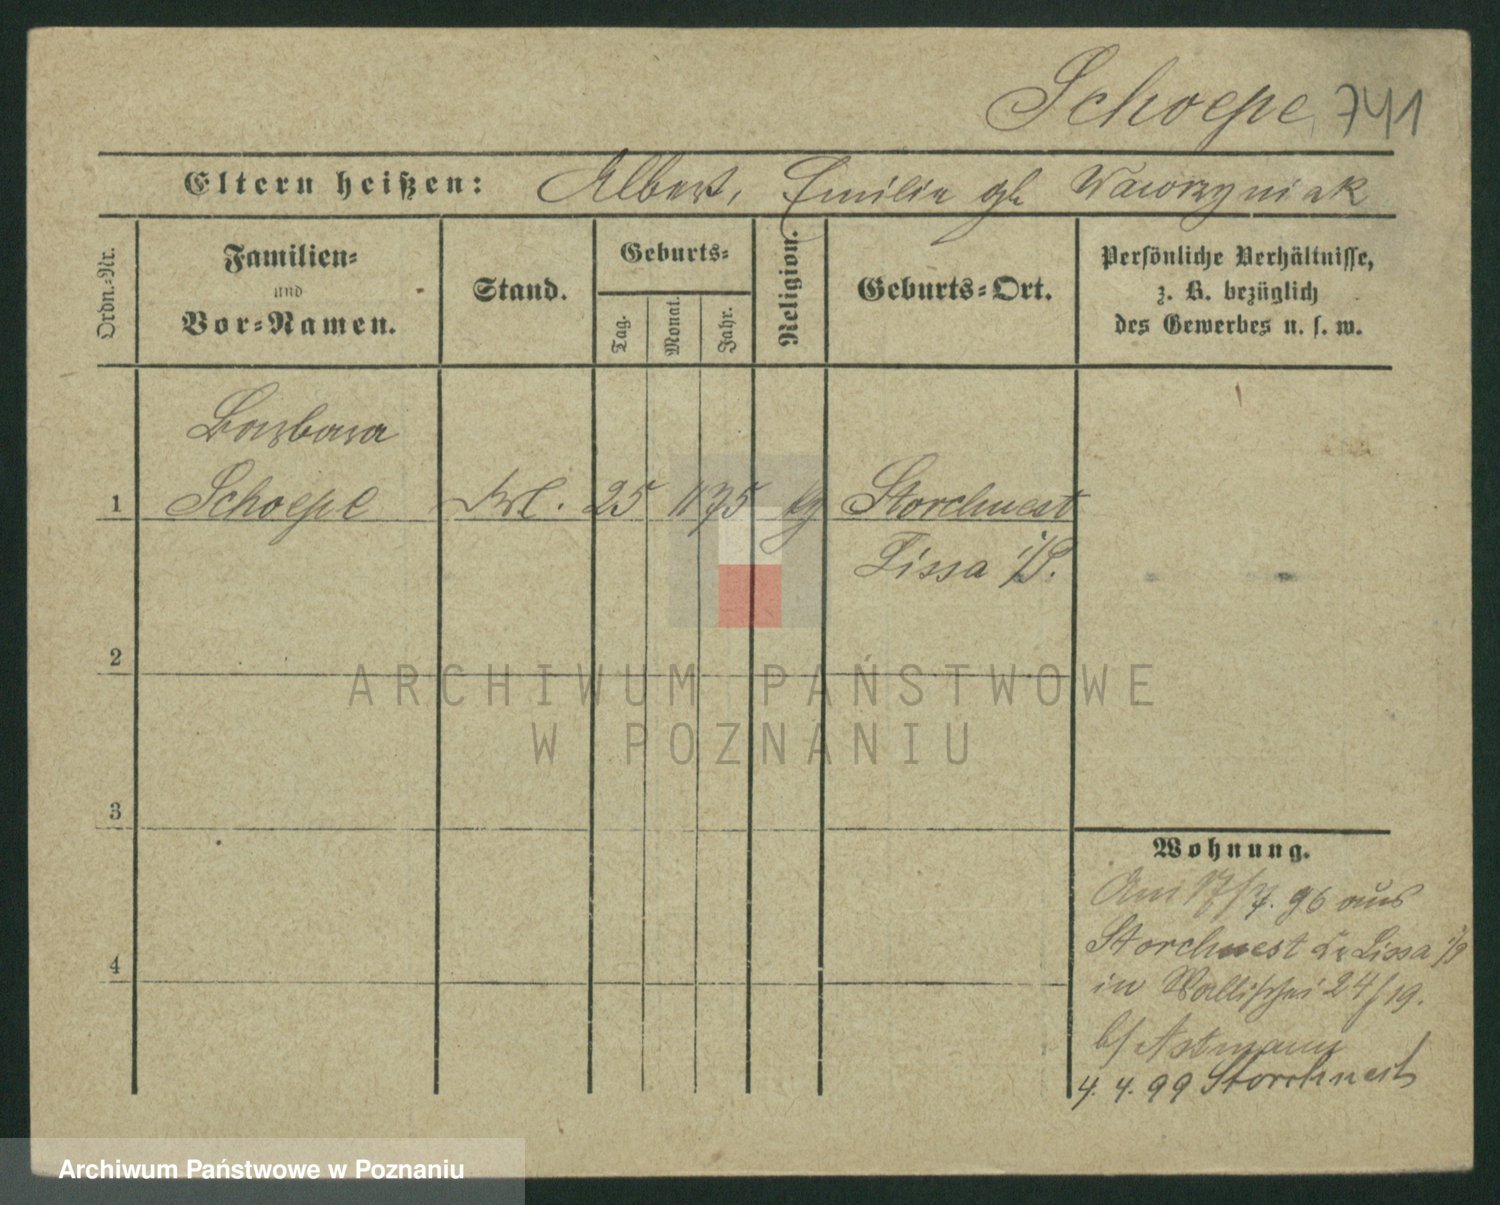 Schoepe 741
Eltern heißen: Albert, Emilie gb Wawrzyniak
Ordn.-Nr.
Familien-
und
Vor-Namen.
Stand.
Geburts-
Tag.
Monat.
Jahr.
Religion.
Geburts-Ort.
Persönliche Verhältnisse,
z. B. bezüglich
des Gewerbes u. s. w.
Barbara
1 Schoepe Frl. 25 11 75 kg Storchnest
Lissa i/P.
2
3
4
Wohnung.
Am 17/7. 96 aus
Storchnest Kr Lissa i/P
in Wallischei 24/19.
b/
4. 4. 99 Storchnest
ARCHIWUM PAŃSTWOWE
W POZNANIU
Archiwum Państwowe w Poznaniu